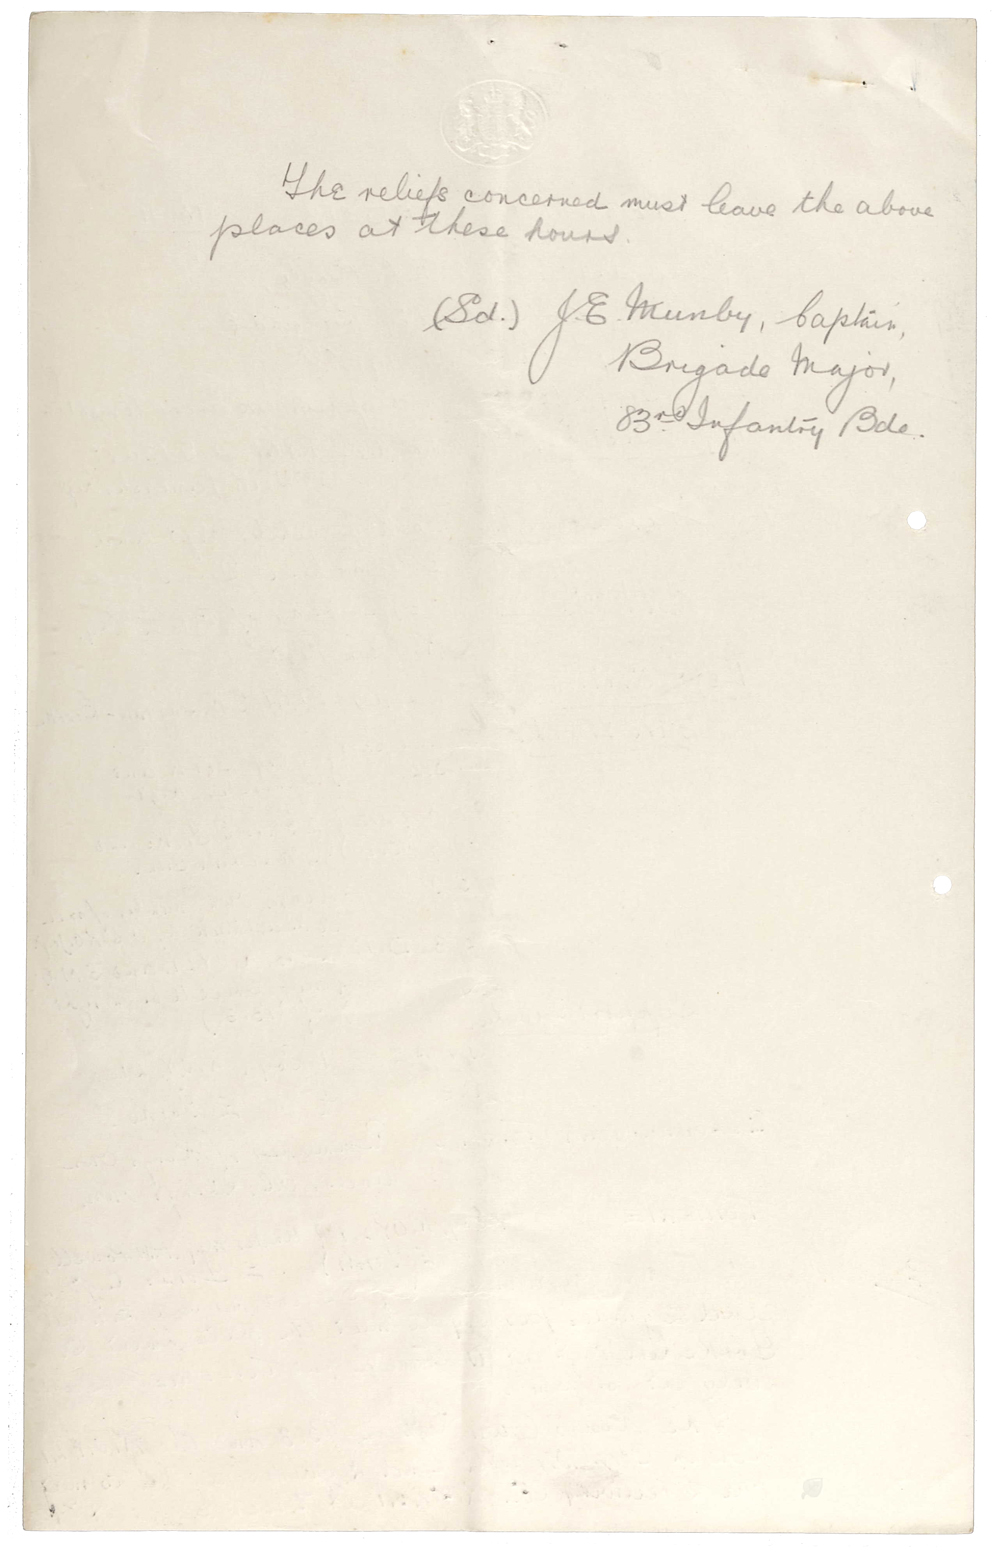 The reliefs concerned must leave the above
places at these hours.
(Sd.) J.E. Munby, Captain,
Brigade Major,
83rd Infantry Bde.